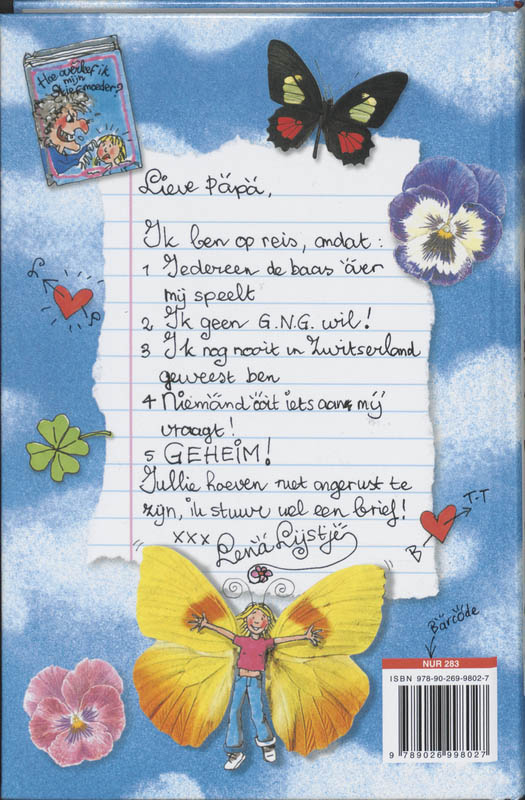 Hoe overleef ik
mijn
stiefmoeder?
Lieve päpä,
Ik ben op reis, omdat:
1 Iedereen de baas över
mij speelt
2 Ik geen G.N.G. wil!
3 Ik nog nooit in Zwitserland
geweest ben
4 Niemänd ööit iets aan mij
vraagt!
5 GEHEIM!
Jullie hoeven niet ongerust te
zijn, ik stuur wel een brief!
xxx Lenä Lijstje
L
S
B T-T
Bärcöde
NUR 283
ISBN 978-90-269-9802-7
9 789026 998027